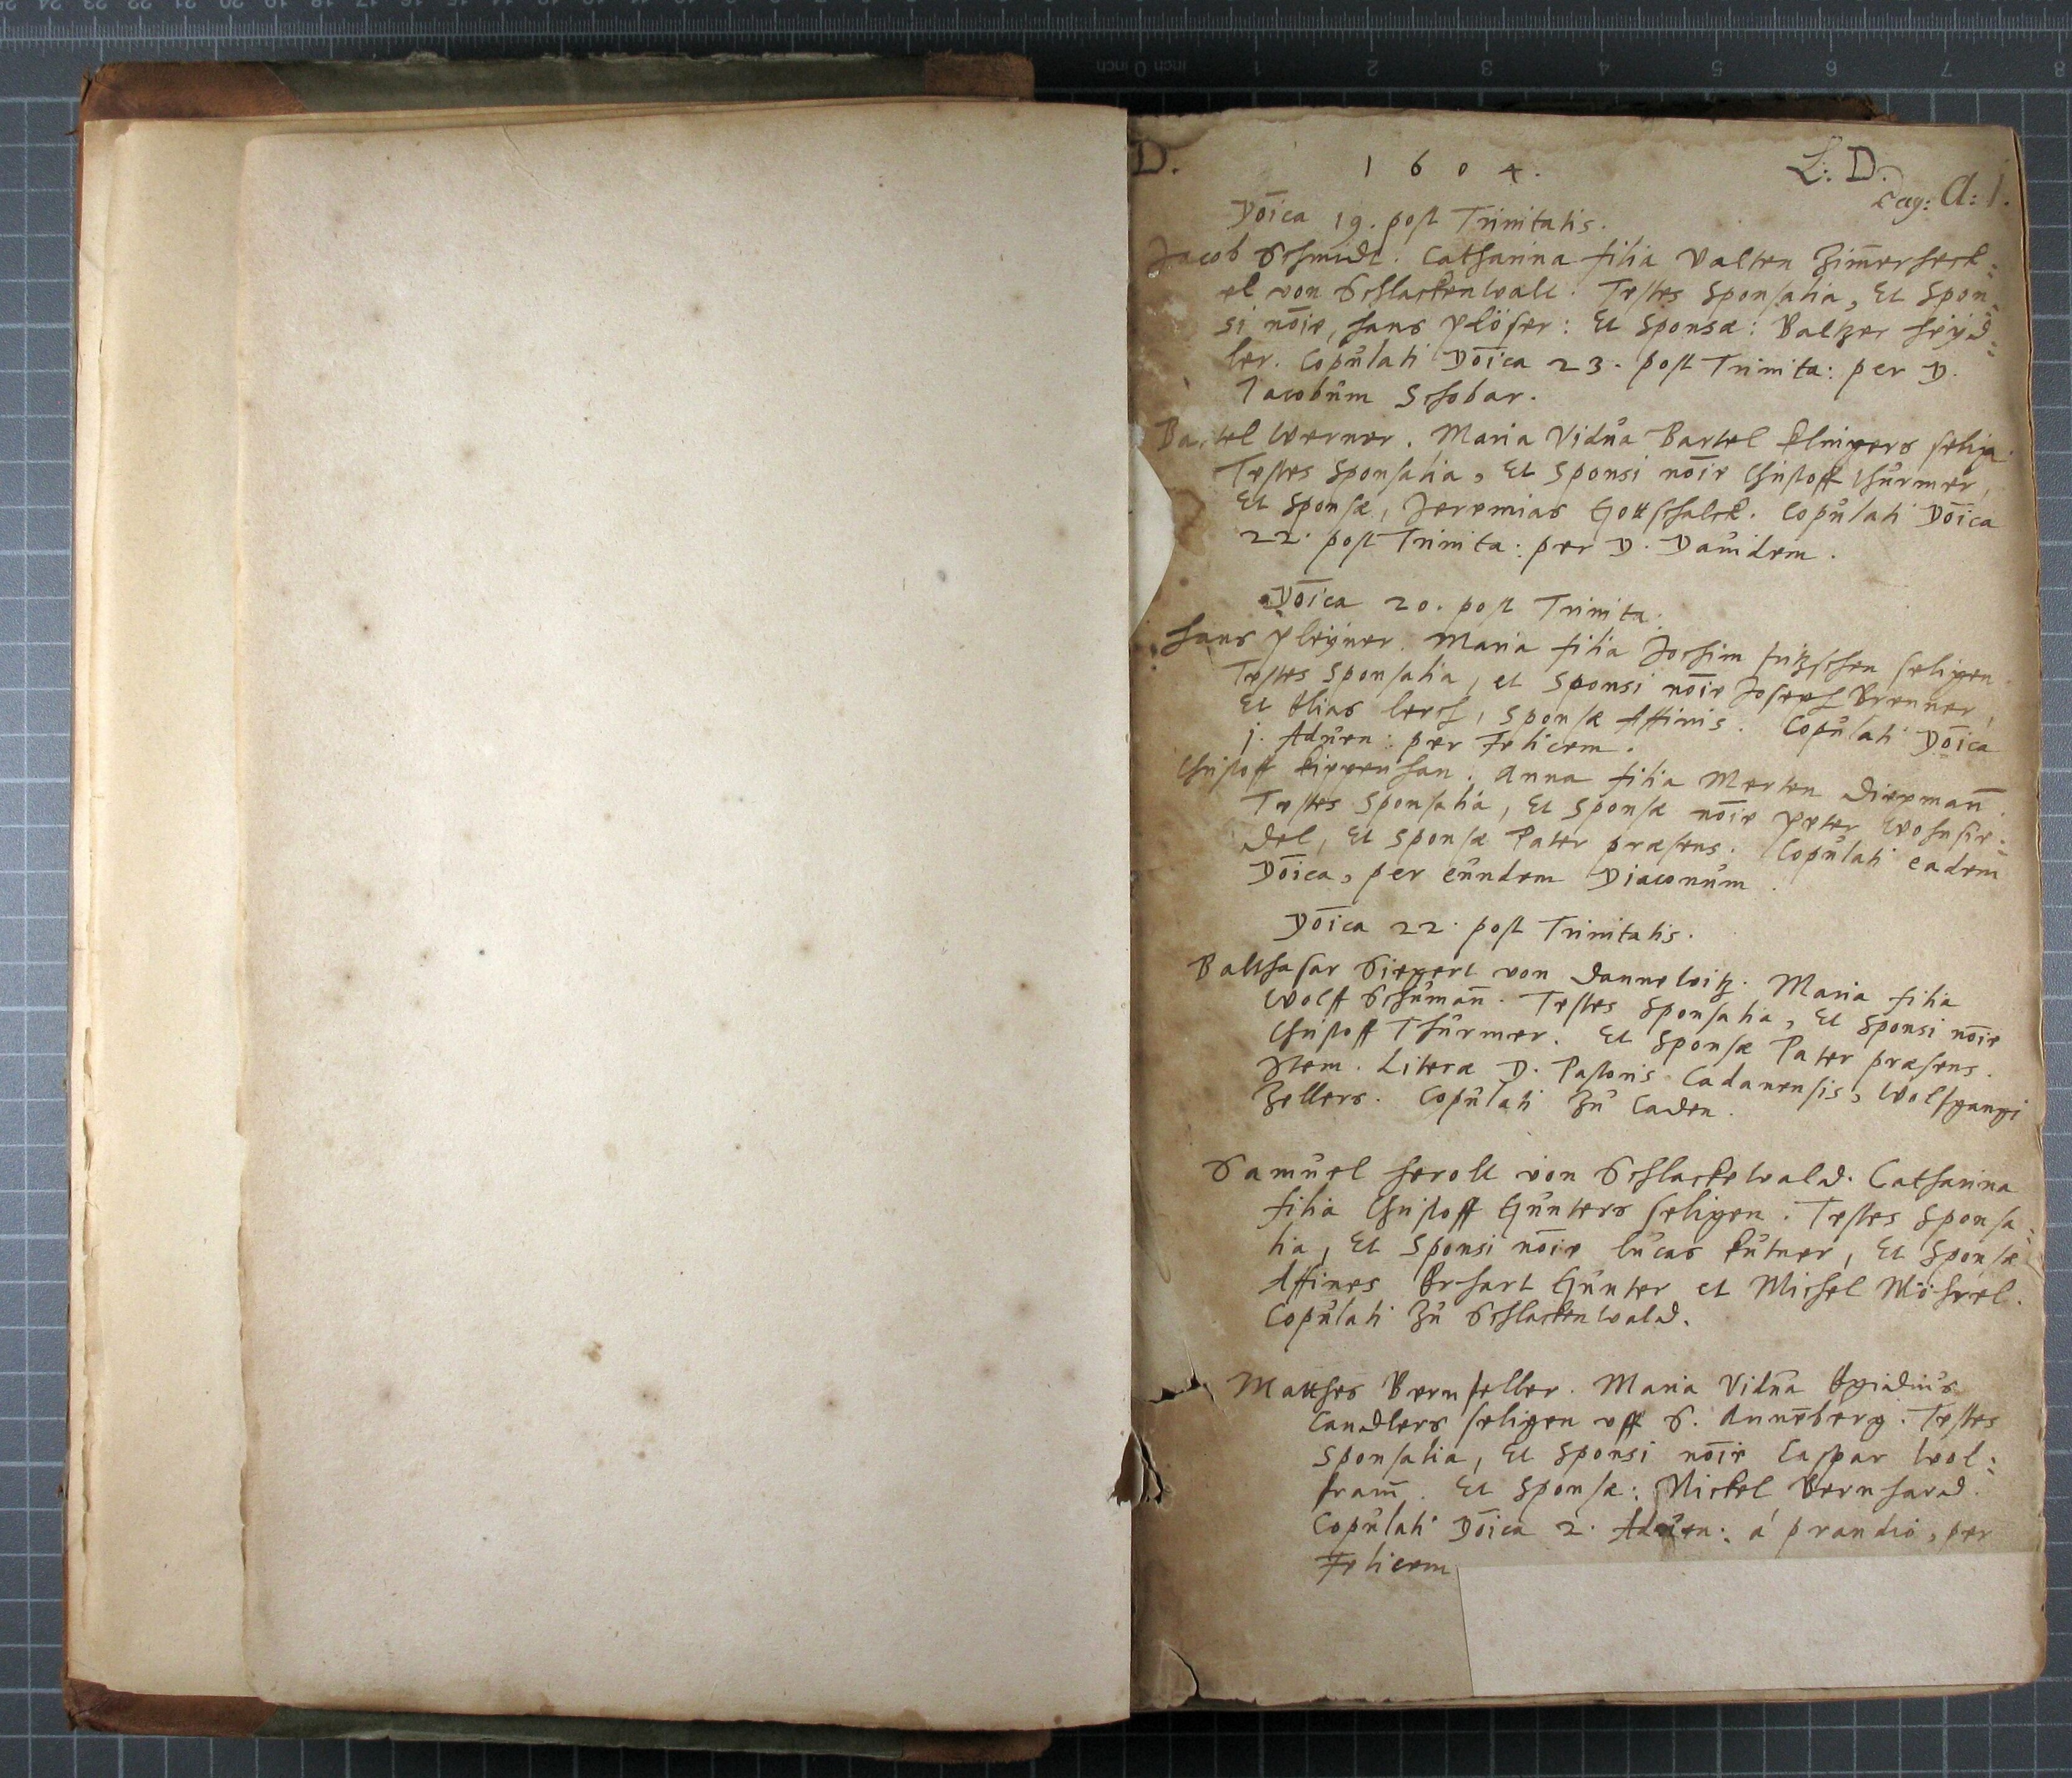 D. 1604. L: D.
Pag: A: 1.
Dōica 19. post Trinitatis.
Jacob Schmidt. Catharina filia Valten Zim̄erheck=
el von Schlackenwalt. Testes Sponsalia, Et Spon=
si nōie, Hans Plöser: Et Sponsæ: Baltzer Heyd=
ler. Copulati Dōica 23. post Trinita: per D.
Jacobum Schobar.
Bartel Werner. Maria Vidua Bartel Klingers selig
Testes Sponsalia, Et Sponsi nōie Christoff Thürmer,
Et Sponsæ, Jeremias Gottschalck. Copulati Dōica
22. post Trinita: per D. Dauidem.
Dōica 20. post Trinita.
Hans Pleyner. Maria filia Jochim Fritzschen seligen
Testes Sponsalia, et Sponsi nōie Joseph Brenner,
Et Elias Lerch, Sponsæ Affinis. Copulati Dōica
j. Aduen: per Felicem.
Christoff Kippenhan. Anna filia Merten Diepman̄.
Testes Sponsalia, Et Sponsæ nōie Peter Wohnsie=
del, Et Sponsæ Pater præsens. Copulati eadem
Dōica, per eundem Diaconum.
Dōica 22. post Trinitatis.
Balthasar Siegert von Dannewitz. Maria filia
Wolff Schuman̄. Testes Sponsalia, Et Sponsi nōie
Christoff Thürmer. Et Sponsæ Pater præsens.
Item. Literæ D. Pastoris Cadanensis, Wolfgangi
Zellers. Copulati Zu Caden.
Samuel Herolt von Schlackewald. Catharina
filia Christoff Günters seligen. Testes Sponsa=
lia, Et Sponsi nōie Lucas Kütner, Et Sponsæ
Affines Erhart Günter et Michel Möhrel.
Copulati Zu Schlackenwald.
Matthes Bernkeller. Maria Vidua Egidius
Candlers seligen vff S. Annēberg. Testes
Sponsalia, Et Sponsi nōie Caspar Wol=
fram̄. Et Sponsæ: Nickel Bernhard.
Copulati Dōica 2. Aduen: á prandio, per
Felicem